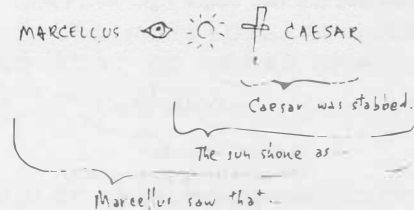 MARCELLUS CAESAR
Caesar was stabbed.
The sun shone as
Marcellus saw that